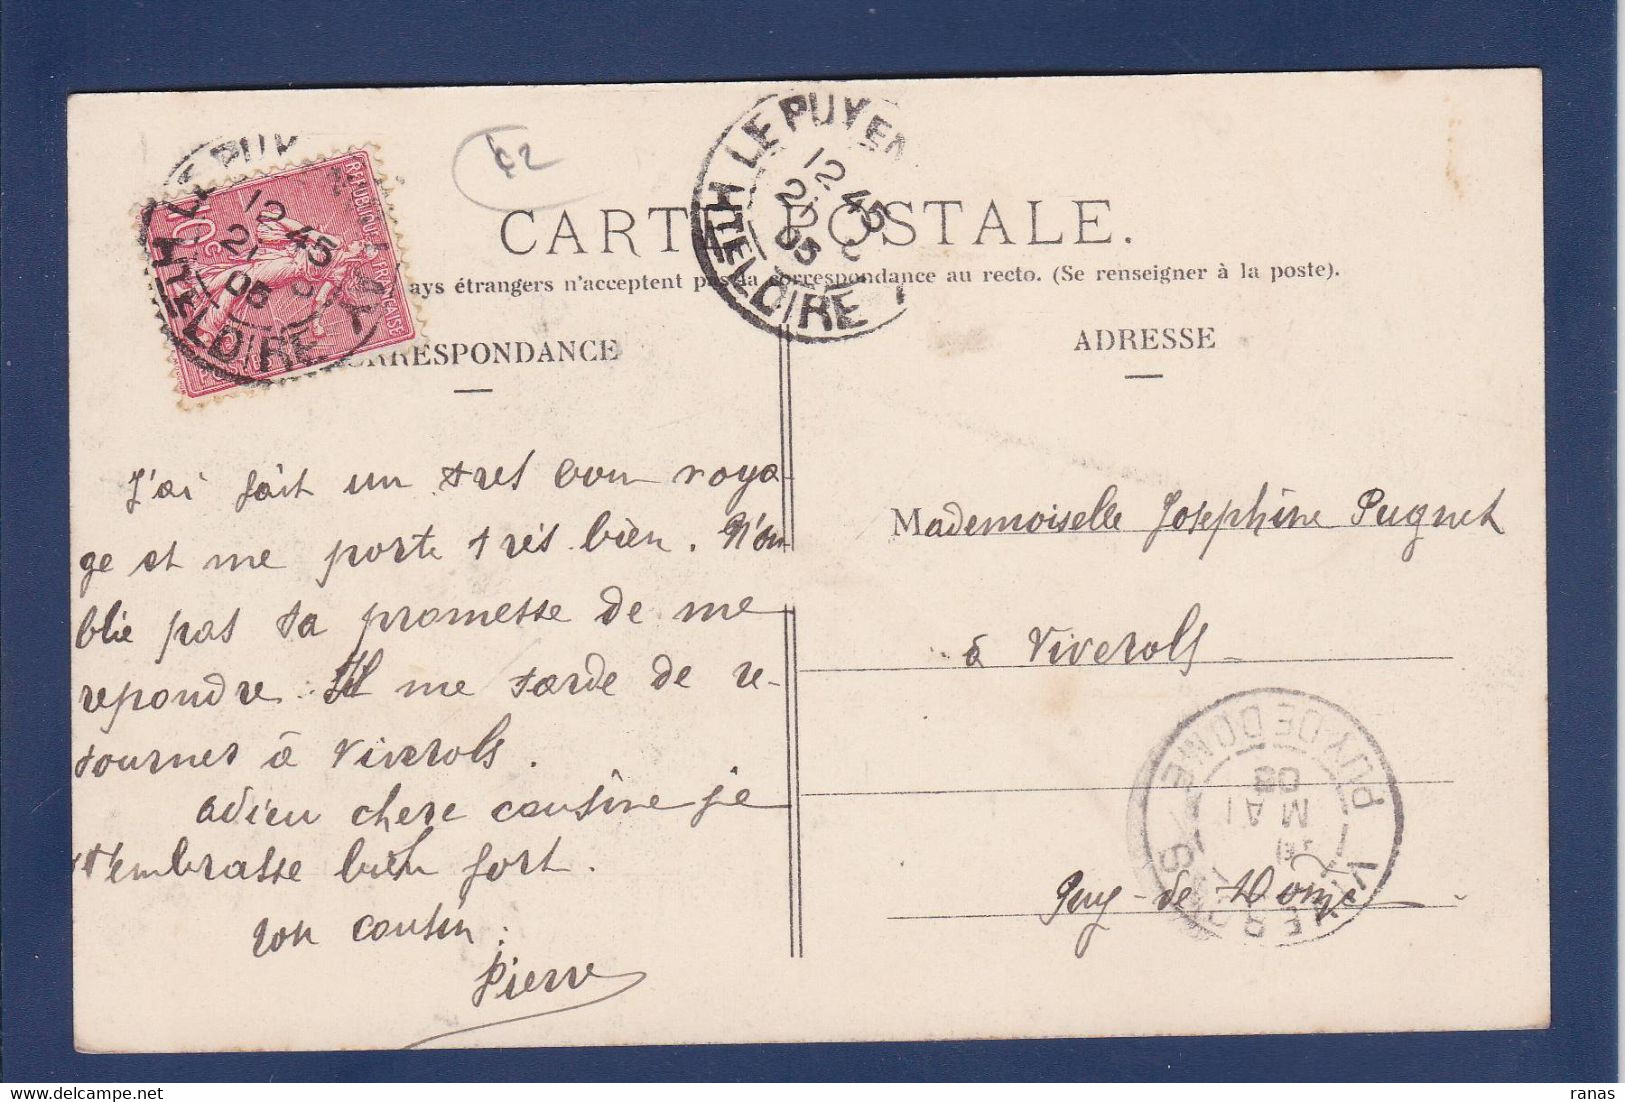 CARTE POSTALE.
ays étrangers n'acceptent pas la correspondance au recto. (Se renseigner à la poste).
CORRESPONDANCE
ADRESSE
RÉPUBLIQUE FRANÇAISE
10c
POSTES
LE PUY EN
12 45
21
05
HTE LOIRE
LE PUY
12 45
21
05
HTE LOIRE
J'ai fait un tres bon voya-
ge et me porte très bien. N'ou-
blie pas ta promesse de me
repondre. Il me tarde de re-
tourner à Viverols.
Adieu chere cousine je
t'embrasse bien fort.
ton cousin:
Pierre
Mademoiselle Josephine Pugnet
à Viverols
Puy-de Dome
VIVEROLS
MAI
05
PUY-DE-DOME
ranas